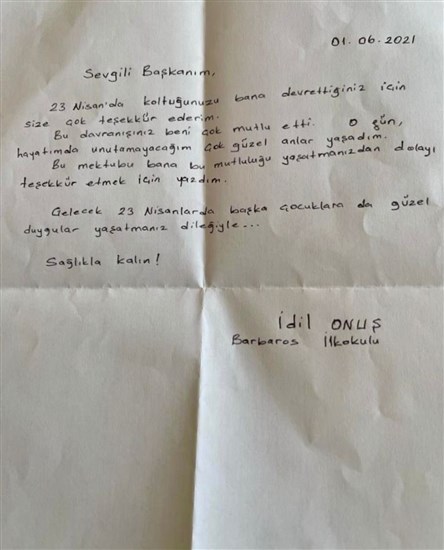 01.06.2021
Sevgili Başkanım,
23 Nisan'da koltuğunuzu bana devrettiğiniz için
size çok teşekkür ederim.
Bu davranışınız beni çok mutlu etti. O gün,
hayatımda unutamayacağım çok güzel anlar yaşadım.
Bu mektubu bana bu mutluluğu yaşatmanızdan dolayı
teşekkür etmek için yazdım.
Gelecek 23 Nisanlarda başka çocuklara da güzel
duygular yaşatmanız dileğiyle...
Sağlıkla kalın!
İdil ONUŞ
Barbaros İlkokulu